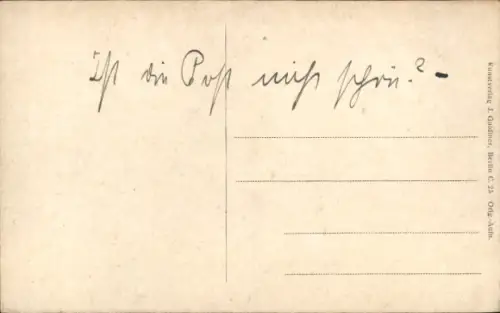 Ist die Post nicht schön? –
Kunstverlag J. Goldiner, Berlin C. 25 Orig.-Aufn.